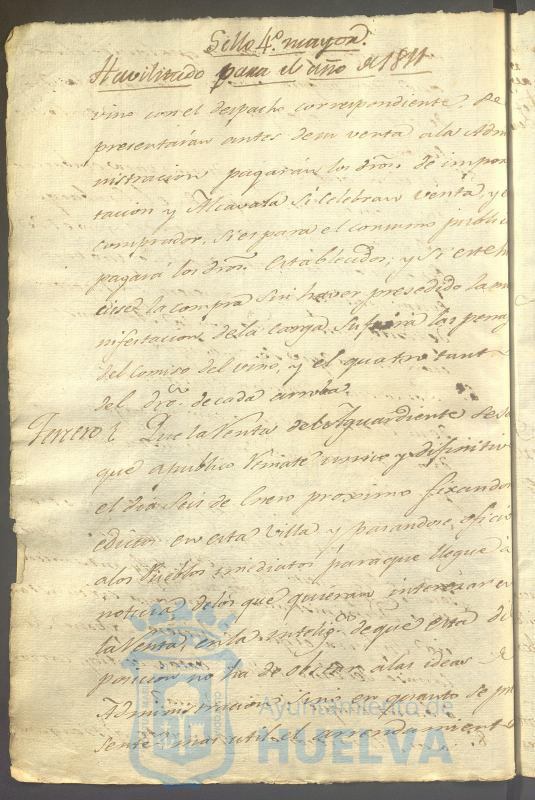 Sello 4º mayor.
Havilitado para el año d 1811
vino con el despacho correspondiente, se
presentarán antes de su venta a la Adm
nistracion pagarán los dros. de impor
tacion y Alcavala si celebran venta, y el
comprador, si es para el consumo publico
pagará los dros. establecidos; y si este hi
ciese la compra sin haver presedido la ma
nifestacion de la carga, sufrirá las penas
del comiso del vino, y el quatro tanto
del dro. de cada arroba.
Terzero Que la Venta del Aguardiente se sa
que a publico Remate unico y difinitivo
el dia seis de Enero proximo fixandose
edictos en esta Villa y pasandose oficio
a los Pueblos imediatos para que llegue à
noticia de los que quieran interezar en
la Venta, en la intelig.ª de que esta dis
posicion no ha de obstar à las ideas de
Administracion, sino en quanto se pre
sente mas util el arrendamiento
Ayuntamiento de
HUELVA